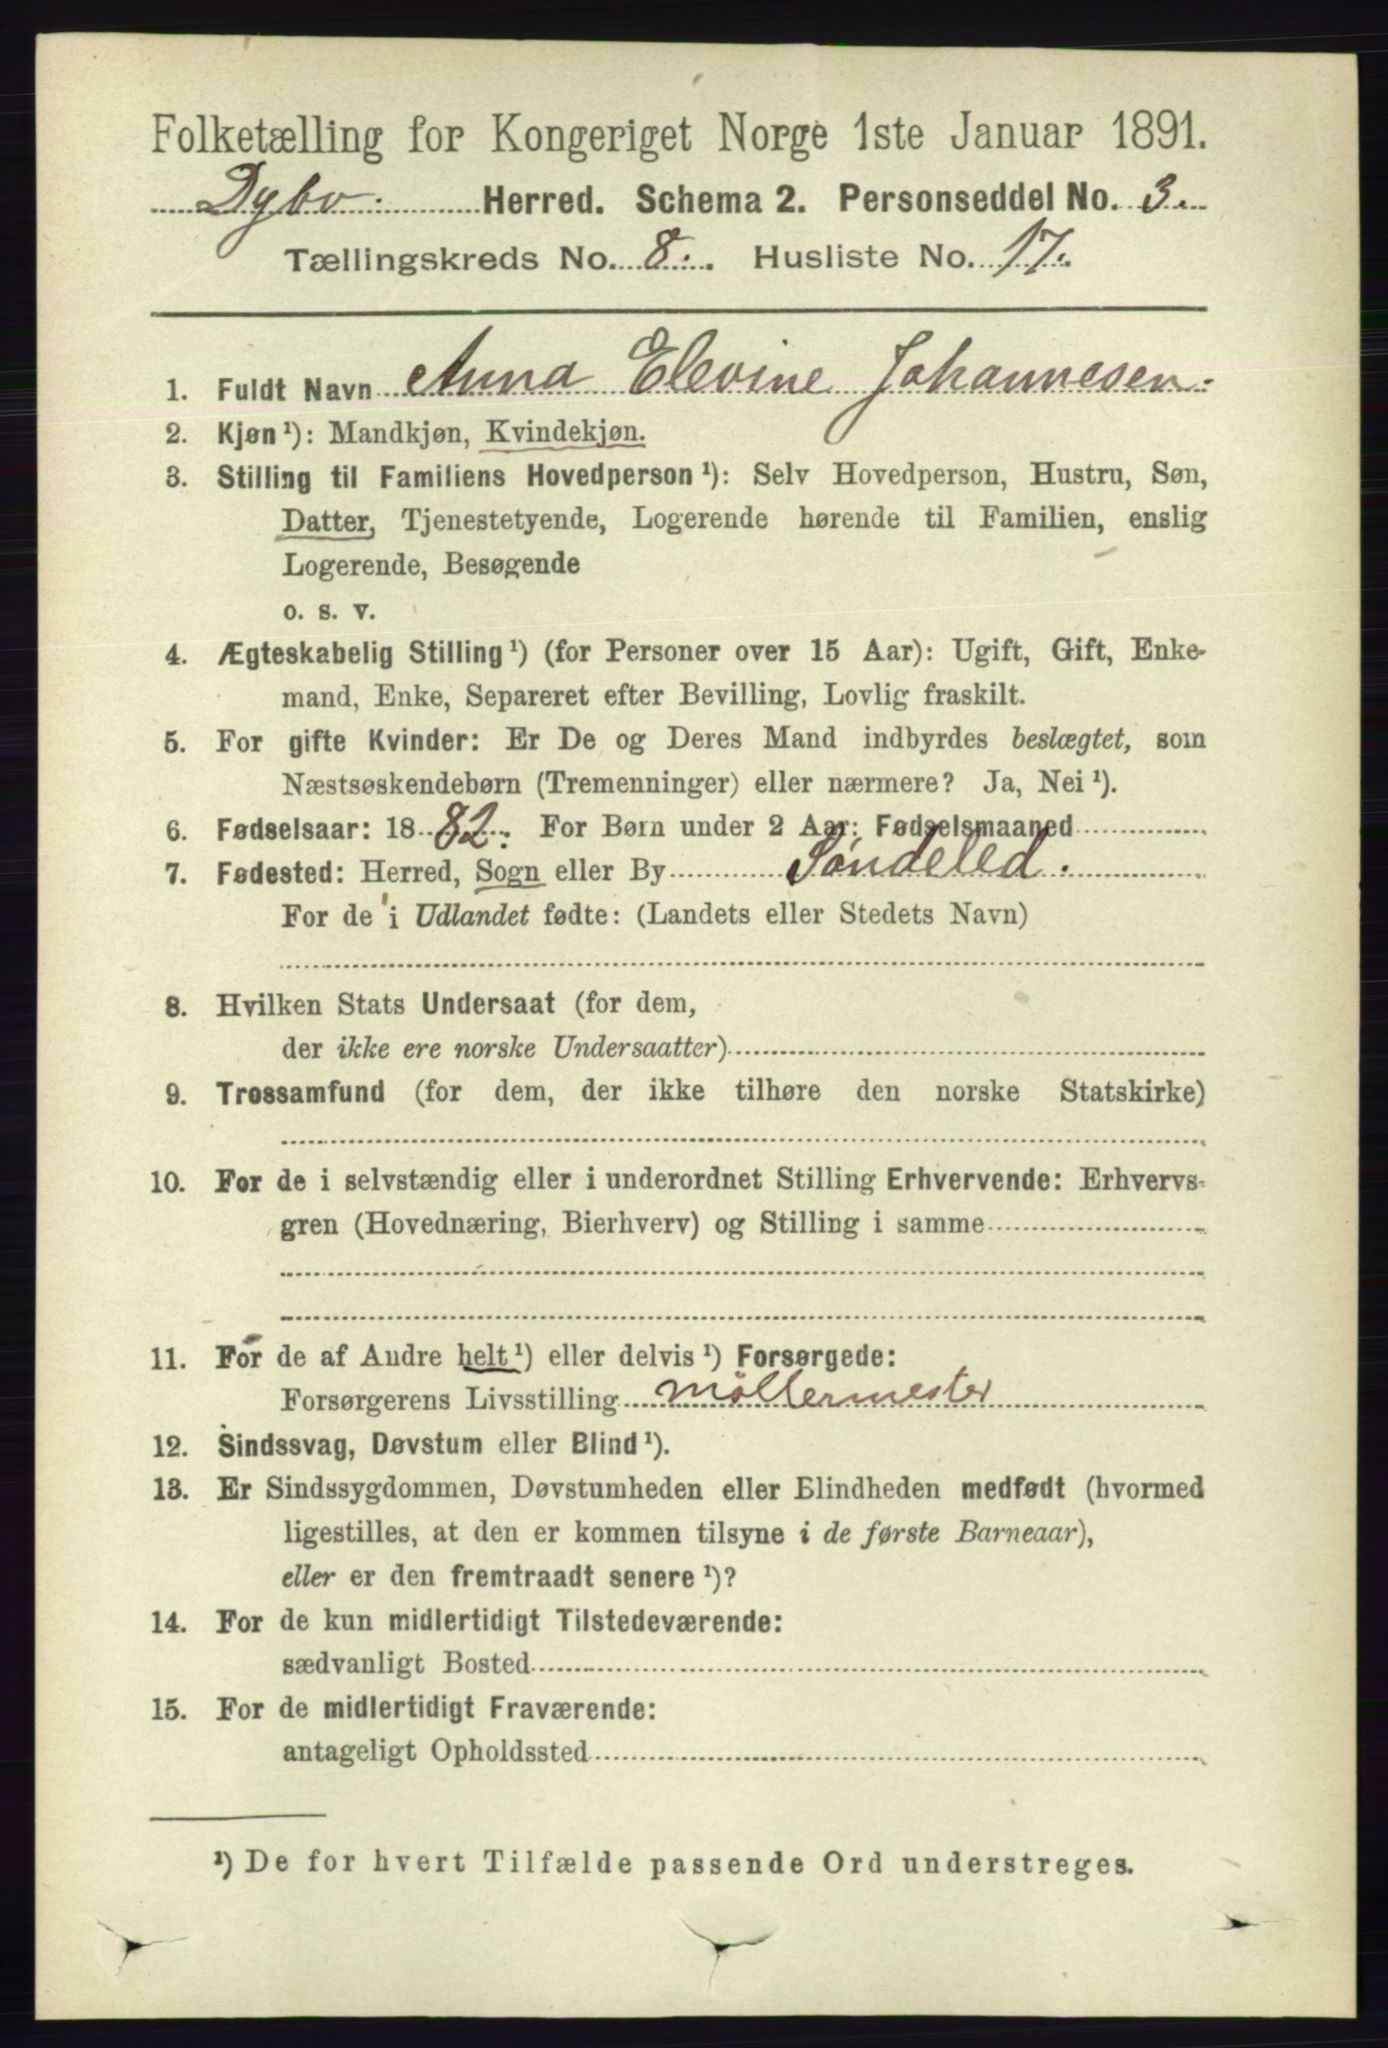 Folketælling for Kongeriget Norge 1ste Januar 1891.
Dybv. Herred. Schema 2. Personseddel No. 3.
Tællingskreds No. 8. Husliste No. 17.
1. Fuldt Navn Anna Elevine Johannesen.
2. Kjøn¹): Mandkjøn, Kvindekjøn.
3. Stilling til Familiens Hovedperson¹): Selv Hovedperson, Hustru, Søn,
Datter, Tjenestetyende, Logerende hørende til Familien, enslig
Logerende, Besøgende
o. s. v.
4. Ægteskabelig Stilling¹) (for Personer over 15 Aar): Ugift, Gift, Enke-
mand, Enke, Separeret efter Bevilling, Lovlig fraskilt.
5. For gifte Kvinder: Er De og Deres Mand indbyrdes beslægtet, som
Næstsøskendebørn (Tremenninger) eller nærmere? Ja, Nei¹).
6. Fødselsaar: 1882. For Børn under 2 Aar: Fødselsmaaned
7. Fødested: Herred, Sogn eller By Söndeled.
For de i Udlandet fødte: (Landets eller Stedets Navn)
8. Hvilken Stats Undersaat (for dem,
der ikke ere norske Undersaatter)
9. Trossamfund (for dem, der ikke tilhøre den norske Statskirke)
10. For de i selvstændig eller i underordnet Stilling Erhvervende: Erhvervs-
gren (Hovednæring, Bierhverv) og Stilling i samme
11. For de af Andre helt¹) eller delvis¹) Forsørgede:
Forsørgerens Livsstilling Möllermester
12. Sindssvag, Døvstum eller Blind¹).
13. Er Sindssygdommen, Døvstumheden eller Blindheden medfødt (hvormed
ligestilles, at den er kommen tilsyne i de første Barneaar),
eller er den fremtraadt senere¹)?
14. For de kun midlertidigt Tilstedeværende:
sædvanligt Bosted
15. For de midlertidigt Fraværende:
antageligt Opholdssted
¹) De for hvert Tilfælde passende Ord understreges.